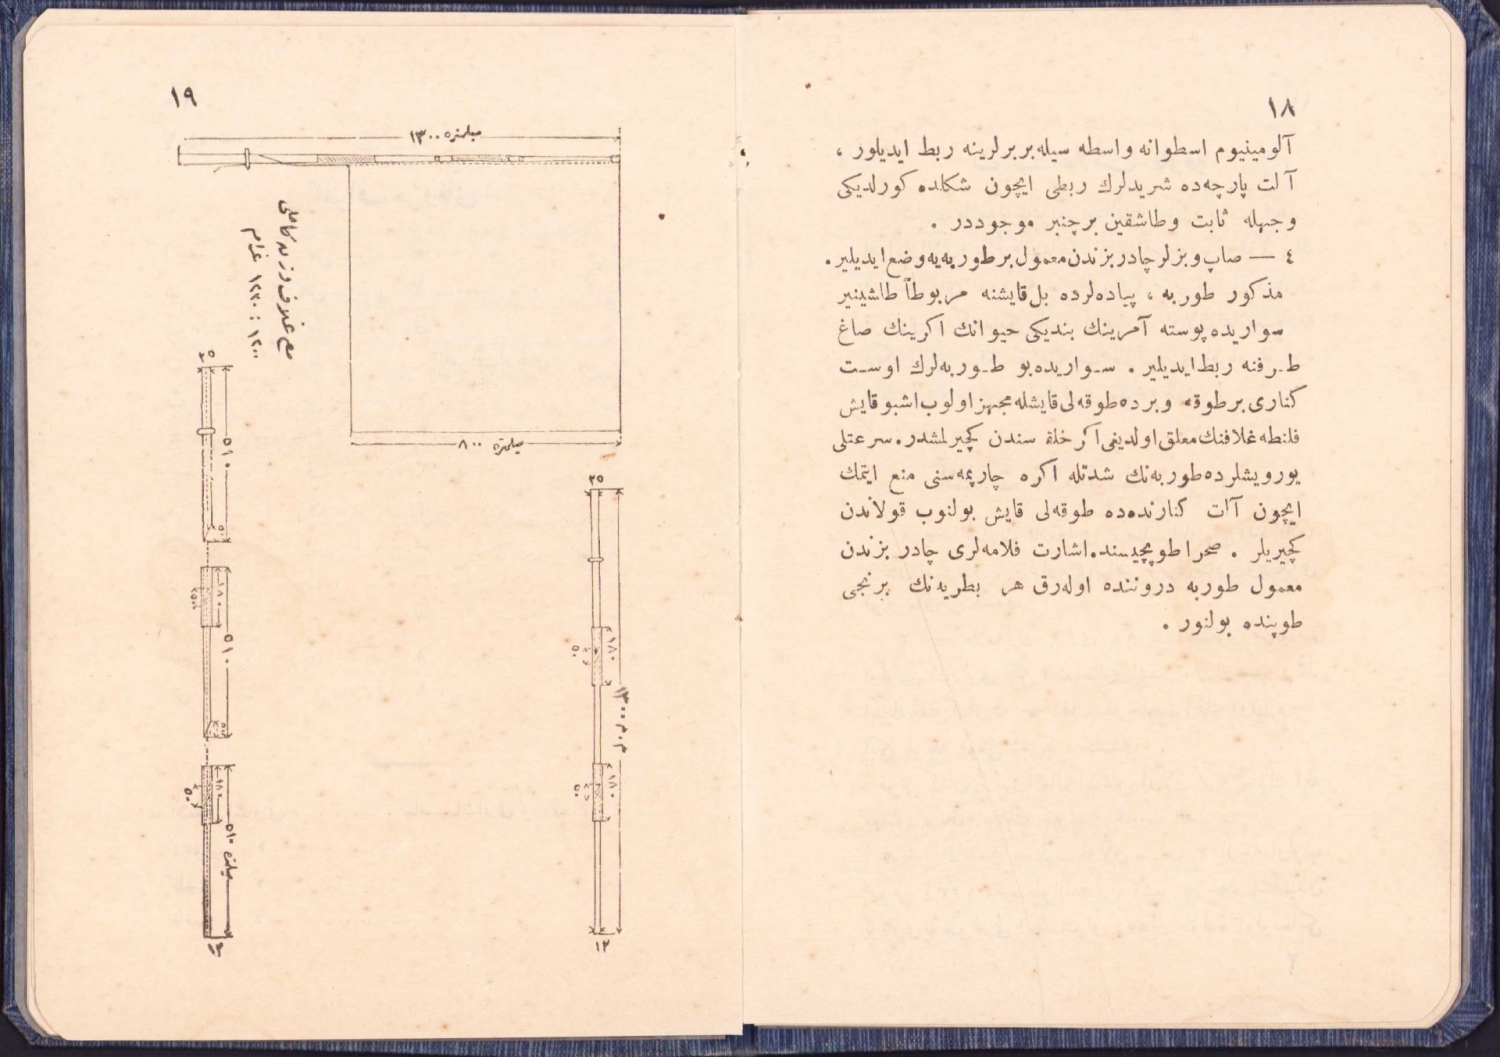 ١٨
آلومينيوم اسطوانه واسطه سيله بربرلرينه ربط ايديلور ،
آلت پارچه‌ده شريدلرك ربطى ايچون شكلده كورلديكى
وجهله ثابت وطاشقين برچنبر موجوددر .
٤ — صاپ وبزلر چادر بزندن معمول بر طوربه‌يه وضع ايديلير .
مذكور طوربه ، پياده‌لرده بل قايشنه مربوطاً طاشينير
سواريده پوسته آمرينك بنديكى حيوانك اكرينك صاغ
طرفنه ربط ايديلير . سواريده بو طوربه‌لرك اوست
كنارى برطوقه وبرده طوقه‌لى قايشله مجهز اولوب اشبو قايش
فلنطه غلافنك معلق اولديغى اكر خلقه سندن كچيرلمشدر . سرعتلى
يورويشلرده طوربه‌نك شدتله اكره چارپمه‌سنى منع ايتمك
ايچون آلت كنارنده‌ده طوقه‌لى قايش بولنوب قولاندن
كچيريلر . صحرا طوپچيسنده اشارت فلامه‌لرى چادر بزندن
معمول طوربه دروننده اوله‌رق هر بطريه‌نك برنجى
طوپنده بولنور .
١٩
ميلمتره ١٣٠٠
ميلمتره ٨٠٠
مع غلاف وزن كاملى
١٢٠٠ : ١٢٣٠ غرام
٢٥
٥١٠
٥٠
١٨٠
٥٠
٥١٠
٥٠
١٨٠
٥٠
٥١٠ ميلمتره
٢٥
١٨٠
٥٠
١٣٠٠ م.م
١٨٠
٥٠
١٢